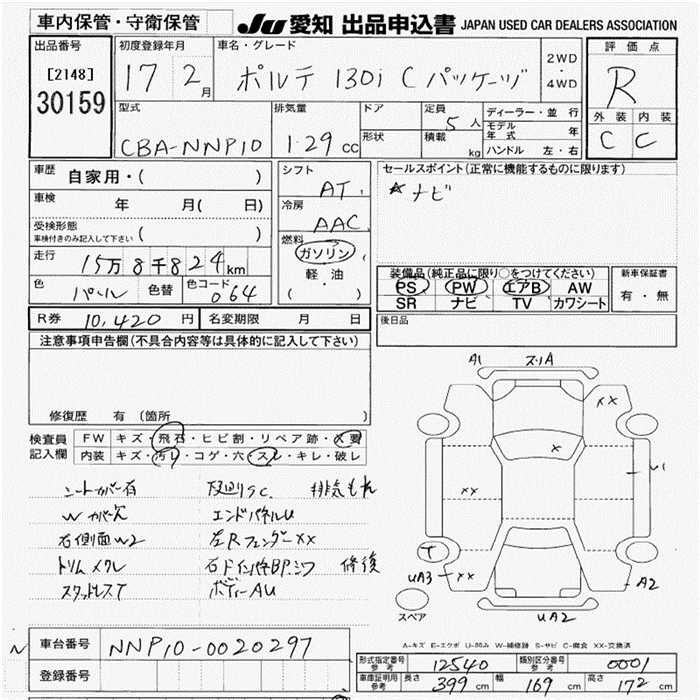 車内保管・守衛保管
JU 愛知 出品申込書 JAPAN USED CAR DEALERS ASSOCIATION
出品番号
[2148]
30159
初度登録年月
17 2月
車名・グレード
ポルテ 130i Cパッケージ
2WD
・
4WD
評価点
R
外装 内装
C C
型式
CBA-NNP10
排気量
1.29 cc
ドア
形状
定員 5 人
積載 kg
ディーラー・並行
モデル年式 年
ハンドル 左・右
車歴 自家用・( )
車検 年 月( 日)
受検形態
車検付きのみ記入して下さい ( )
走行 15万8千824km
色 パール 色替 色コード 064
シフト
AT
冷房
AAC
燃料
ガソリン
軽・油
( ・ )
セールスポイント(正常に機能するものに限ります)
★ナビ
装備品(純正品に限り○をつけてください)
PS PW エアB AW
SR ナビ TV カワシート
新車保証書
有・無
R券 10,420 円 名変期限 月 日
後日品
注意事項申告欄(不具合内容等は具体的に記入して下さい)
修復歴 有(箇所
検査員記入欄
FW キズ・飛石・ヒビ割・リペア跡・X要
内装 キズ・汚レ・コゲ・穴・スレ・キレ・破レ
シートカバー有
Wカバー欠
右側面W2
トリムメクレ
スタッドレスT
下廻りSC 排気もれ
エンドパネルU
左Rフェンダー××
ボディーAU
修復
A1
××
×
U1
××
T
UA3
××
A2
UA2
スペア
A-キズ E-エクボ U-凹み W-補修跡 S-サビ C-腐食 XX-交換済
車台番号 NNP10-0020297
登録番号
形式指定番号 参考 12540 類別区分番号 参考 0001
車庫証明用 参考 長さ 399 cm 幅 169 cm 高さ 172 cm